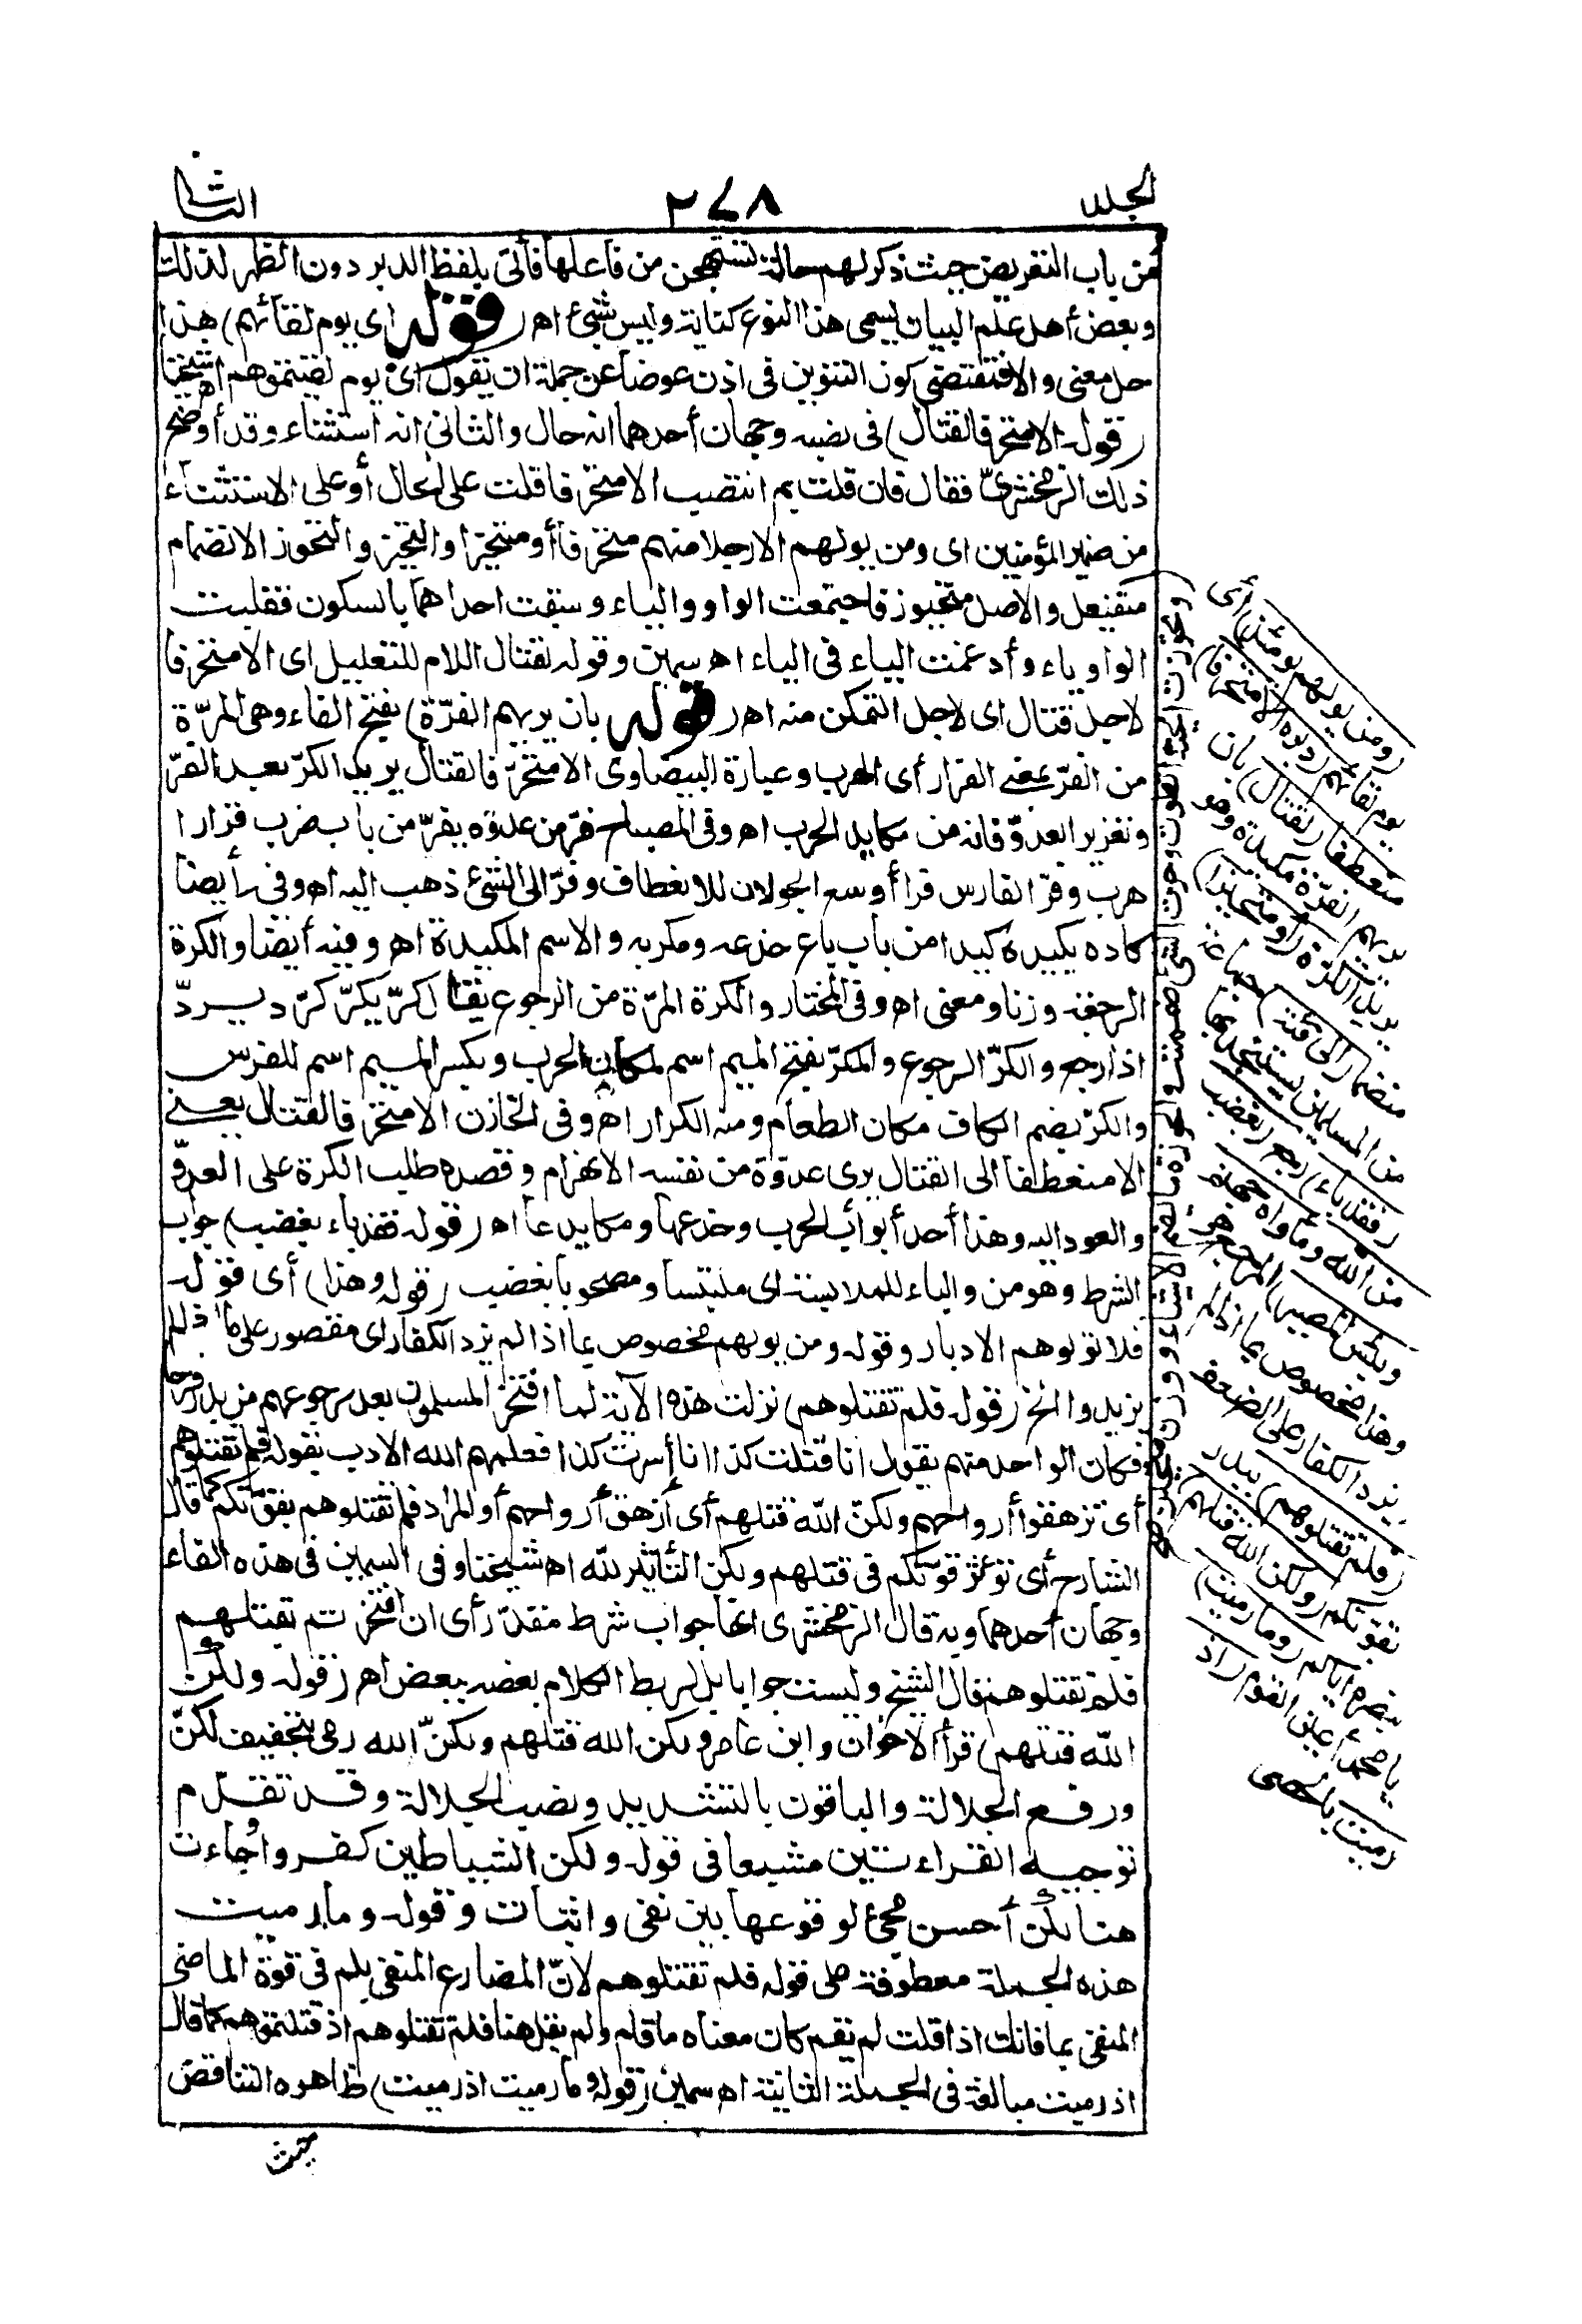 الجلد
٢٧٨
الثانى
من باب التعريض حيث ذكر لهم حالة تستهجن من فاعلها فأتى بلفظ الدبر دون الظهر لذلك
وبعض أهل علم البيان يسمى هذا النوع كناية وليس بشئ اهـ (قوله اى يوم لقائهم) هذا
حل معنى والا فمقتضى كون التنوين فى اذن عوضا عن جملة ان يقول اى يوم لقيتموهم اهـ شيخنا
(قوله الامتحرفا لقتال) فى نصبه وجهان أحدهما انه حال والثانى انه استثناء وقد أوضح
ذلك الزمخشرىّ فقال فان قلت بم انتصب الامتحرفا قلت على الحال أو على الاستثناء
من ضمير المؤمنين اى ومن يولهم الارجلا منهم متحرفا أو متحيزا والتحيز والتحوز الانضمام
متفيعل والاصل متحيوز فاجتمعت الواو والياء وسبقت احداهما بالسكون فقلبت
الواو ياء وأدغمت الياء فى الياء اهـ سمين وقوله لقتال اللام للتعليل اى الامتحرفا
لاجل قتال اى لاجل التمكن منه اهـ (قوله بان يريهم الفرّة) بفتح الفاء وهى المرّة
من الفرّ بمعنى الفرار أى الهرب وعبارة البيضاوى الامتحرّفا لقتال يريد الكرّ بعد الفرّ
وتغرير العدوّ فانه من مكايد الحرب اهـ وفى المصباح فرّ من عدوّه يفرّ من باب ضرب فرارا
هرب وفرّ الفارس فرا أوسع الجولان للانعطاف وفرّ الى الشئ ذهب اليه اهـ وفيه أيضا
كاده يكيده كيدا من باب باع خدعه ومكر به والاسم المكيدة اهـ وفيه أيضا والكرة
الرجفة وزنا ومعنى اهـ وفى المختار والكرة المرّة من الرجوع يقال كرّ يكرّ كرّ ديردّ
اذا رجع والكرّ الرجوع والمكرّ بفتح الميم اسم لمكان الحرب وبكسر الميم اسم للفرس
والكرّ بضم الكاف مكان الطعام ومنه الكرار اهـ وفى الخازن الامتحرفا لقتال يعنى
الامنعطفا الى القتال يرى عدوّه من نفسه الانهزام وقصده طلب الكرة على العدوّ
والعود اليه وهذا أحد أبواب الحرب وخدعها ومكايدها اهـ (قوله فقد باء بغضب) جواب
الشرط وهو من والباء للملابسة اى ملتبسا ومصحوبا بغضب (قوله وهذا) أى قوله
فلا تولوهم الادبار وقوله ومن يولهم مخصوص بما اذا لم يزد الكفار اى مقصور على ما اذا لم
يزيدوا الخ (قوله فلم تقتلوهم) نزلت هذه الآية لما افتخر المسلمون بعد رجوعهم من بدر
فكان الواحد منهم يقول انا قتلت كذا انا أسرت كذا فعلمهم الله الادب بقوله فلم تقتلوهم
أى تزهقوا أرواحهم ولكنّ الله قتلهم أى أزهق أرواحهم أو المراد فلم تقتلوهم بقوّتكم كما قال
الشارح أى تؤثر قوتكم فى قتلهم ولكن التأثير لله اهـ شيخنا وفى السمين فى هذه الفاء
وجهان أحدهما وبه قال الزمخشرى انها جواب شرط مقدّر أى ان افتخرتم بقتلهم
فلم تقتلوهم قال الشيخ وليست جوابا بل لربط الكلام بعضه ببعض اهـ (قوله ولكن
الله قتلهم) قرأ الاخوان وابن عامر ولكن الله قتلهم ولكنّ الله رمى بتخفيف لكنّ
ورفع الجلالة والباقون بالتشديد ونصب الجلالة وقد تقدّم
توجيه القراءتين مشبعا فى قوله ولكن الشياطين كفروا وجاءت
هنا لكن أحسن مجئ لوقوعها بين نفى واثبات وقوله وما رميت
هذه الجملة معطوفة على قوله فلم تقتلوهم لانّ المضارع المنفى بلم فى قوّة الماضى
المنفى بما فانك اذا قلت لم يقم كان معناه ما قام ولم يقل هنا فلم تقتلوهم اذ قتلتموهم كما قال
اذ رميت مبالغة فى الجملة الثانية اهـ سمين (قوله وما رميت اذ رميت) ظاهره التناقض
حيث
(ومن يولهم يومئذ) أى
يوم لقائهم (دبره الامتحرفا)
منعطفا (لقتال) بان
يريهم الفرّة مكيدة وهو
يريد الكرة (أو متحيزا)
منضما (الى فئة) جماعة
من المسلمين يستنجد بها
(فقد باء) رجع (بغضب
من الله ومأواه جهنم
وبئس المصير) المرجع هى
وهذا مخصوص بما اذا لم
يزد الكفار على الضعف
(فلم تقتلوهم) ببدر
بقوتكم (ولكن الله قتلهم)
بنصره اياكم (وما رميت)
يا محمد أعين القوم (اذ
رميت) بالحصى